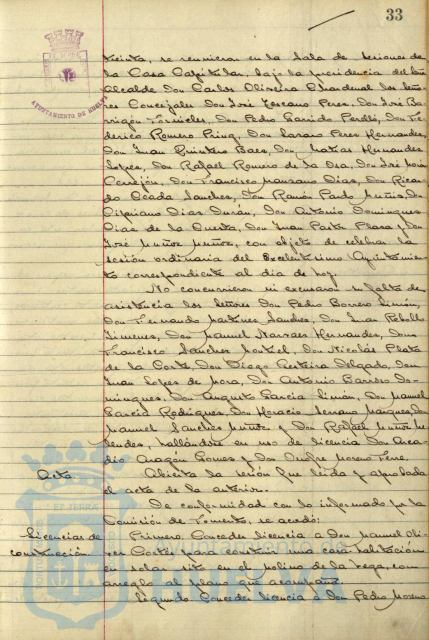 33
treinta, se reunieron en la Sala de Sesiones de
la Casa Capitular, bajo la presidencia del Sr.
Alcalde Don Carlos Oliveira Chardenal los Seño-
res Concejales Don José Toscano Perez, Don José Ba-
rrigón Fornieles, Don Pedro Garrido Perelló, Don Fe-
derico Romero Pring, Don Lazaro Perez Hernandez,
Don Juan Quintero Baez, Don Matias Hernandez
Lopez, Don Rafael Romero de la Osa, Don José
Cerrejón, Don Francisco Manzano Dias, Don Ricar-
do Sanchez, Don Ramón Pardo Muñiz, Don
Cipriano Dias Durán, Don Antonio Dominguez
de la Cueva, Don Juan Plaza y Don
José Muñoz Muñoz, con objeto de celebrar la
sesión ordinaria del Excelentisimo Ayuntamien-
to correspondiente al dia de hoy.
No concurrieron ni excusaron su falta de
asistencia los Señores Don Pedro Borrero Limón,
Don Fernando Martinez Sanchez, Don Juan Rebollo
Jimenez, Don Manuel Narvaez Hernandez, Don
Francisco Sanchez Montiel, Don Nicolás Plata
de la Corte, Don Diego Delgado, Don
Juan Lopez de Mora, Don Antonio Barroso Do-
minguez, Don Augusto Garcia Limón, Don Manuel
Garcia Rodriguez, Don Horacio Serrano Marquez, Don
Manuel Sanchez Muñoz y Don Rafael Muñoz Me-
lendez, hallándose en uso de licencia Don Arca-
dio Aragón Gomez y Don Onofre Moreno
Acta Abierta la sesión fue leida y aprobada
el acta de la anterior.
De conformidad con lo informado por la
Comisión de Fomento, se acordó:
Licencias de Primero. Conceder licencia a Don Manuel Oli-
construcción ver Cortés para construir una casa habitación
en solar sito en el molino de la Vega, con
arreglo al plano que acompaña.
Segundo. Conceder licencia a Don Pedro Moreno
AYUNTAMIENTO DE HUELVA